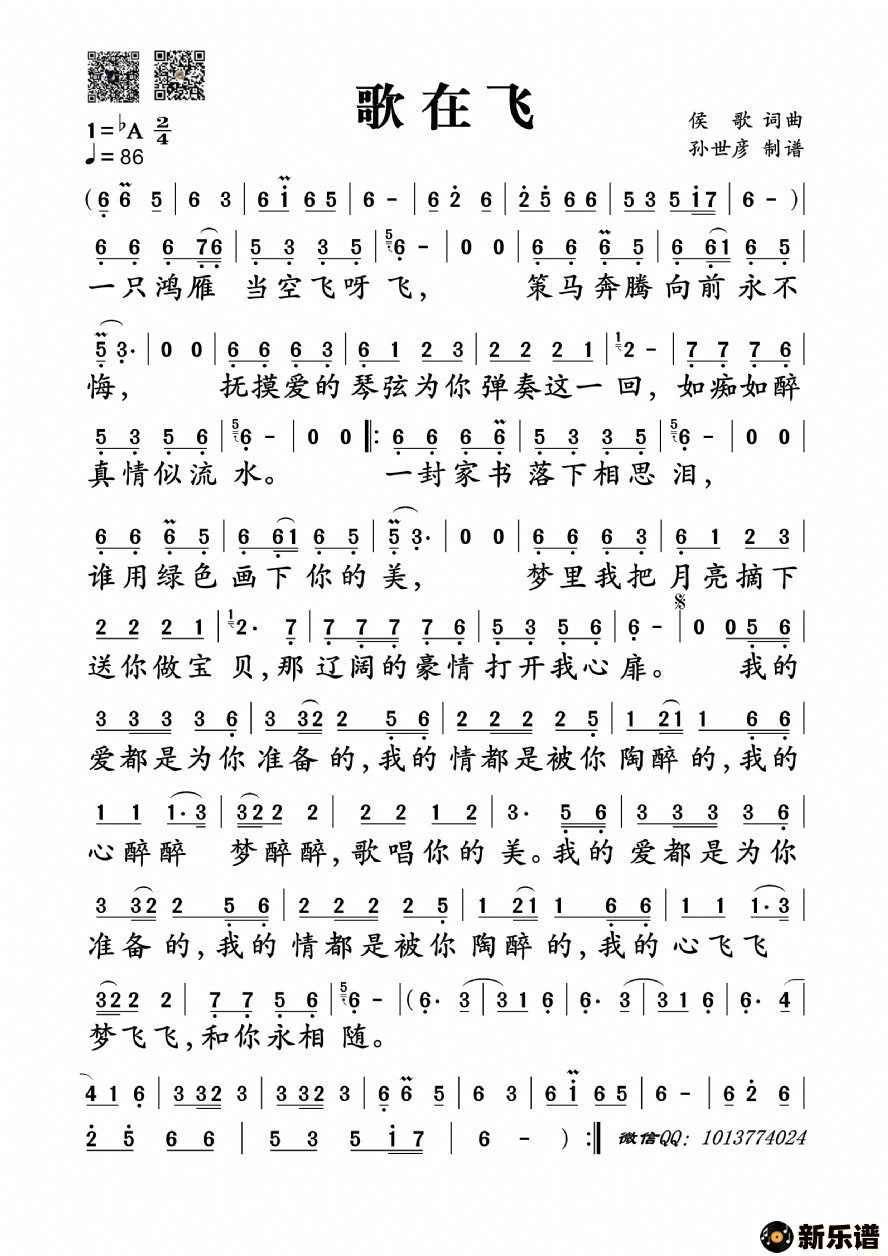 歌在飞
1=♭A 2/4
♩=86
侯 歌 词曲
孙世彦 制谱
(6 6 5 | 6 3 | 6 i 6 5 | 6 - | 6 2 6 | 2 5 6 6 | 5 3 5 1 7 | 6 - ) |
6 6 6 7 6 | 5 3 3 5 | 5 6 - | 0 0 | 6 6 6 5 | 6 6 1 6 5 |
一只鸿雁 当空飞呀 飞, 策马奔腾向前永不
5 3· | 0 0 | 6 6 6 3 | 6 1 2 3 | 2 2 2 1 | 1 2 - | 7 7 7 6 |
悔, 抚摸爱的琴弦为你弹奏这一回,如痴如醉
5 3 5 6 | 5 6 - | 0 0 |: 6 6 6 6 | 5 3 3 5 | 5 6 - | 0 0 |
真情似流 水。 一封家书落下相思泪,
6 6 6 5 | 6 6 1 6 5 | 5 3· | 0 0 | 6 6 6 3 | 6 1 2 3 |
谁用绿色画下你的美, 梦里我把月亮摘下
2 2 2 1 | 1 2· 7 | 7 7 7 7 6 | 5 3 5 6 | 6 - | 0 0 5 6 |
送你做宝 贝,那辽阔的豪情打开我心扉。 我的
3 3 3 3 6 | 3 3 2 2 5 6 | 2 2 2 2 5 | 1 2 1 1 6 6 |
爱都是为你准备的,我的情都是被你陶醉的,我的
1 1 1· 3 | 3 2 2 2 | 2 2 1 2 | 3· 5 6 | 3 3 3 3 6 |
心醉醉 梦醉醉,歌唱你的美。我的爱都是为你
3 3 2 2 5 6 | 2 2 2 2 5 | 1 2 1 1 6 6 | 1 1 1· 3 |
准备的,我的情都是被你陶醉的,我的心飞飞
3 2 2 2 | 7 7 5 6 | 5 6 - | (6· 3 | 3 1 6 | 6· 3 | 3 1 6 | 6· 4 |
梦飞飞,和你永相 随。
4 1 6 | 3 3 2 3 | 3 3 2 3 | 6 6 5 | 6 3 | 6 i 6 5 | 6 - | 6 2 6 |
2 5 6 6 | 5 3 5 1 7 | 6 - ) :|
微信QQ: 1013774024
新乐谱